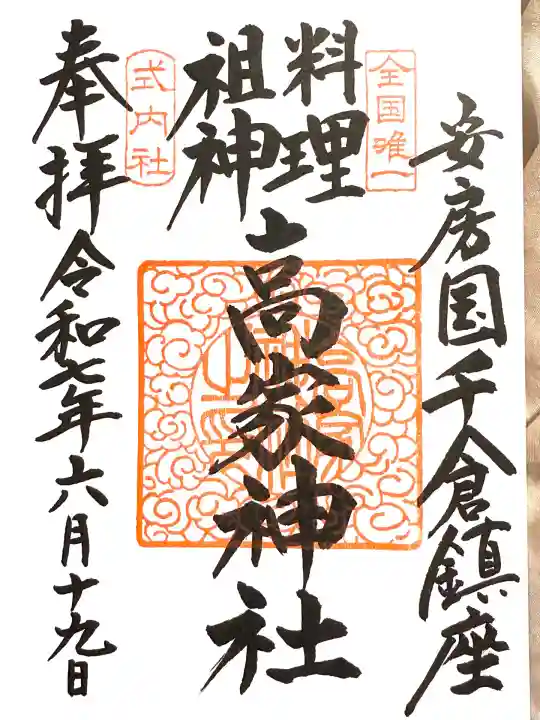 安房国千倉鎮座
全国唯一
料理
祖神
高家神社
式内社
奉拝
令和七年六月十九日